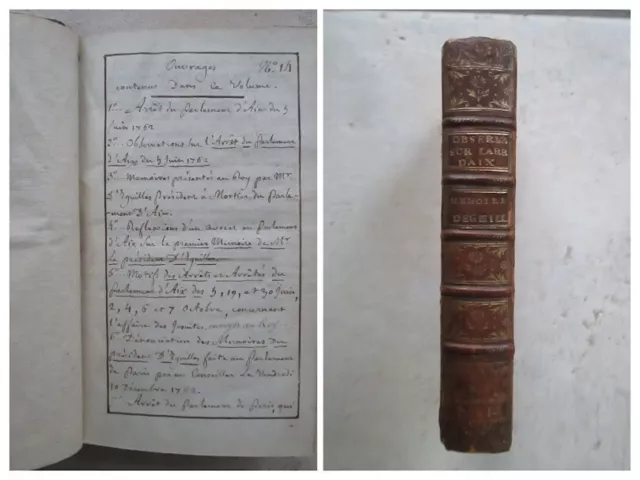 Ouvrages No. 14
contenus Dans Ce Volume.
1o. Arrêt du Parlement d'Aix du 5
Juin 1762
2o. Observations sur l'Arrêt du Parlement
d'Aix du 5 Juin 1762
3o. Memoires présentés au Roy par Mr.
D'Eguilles Président à Mortier du Parle-
ment D'Aix.
4o. Reflexions d'un avocat au Parlement
d'Aix sur le premier Memoire de Mr.
le président D'Eguilles
5o. Motifs des Arrêts et Arrêtés du
Parlement d'Aix des 5, 19, et 30 Juin,
2, 4, 6 et 7 Octobre, concernant
l'affaire des Jesuites, au Roy.
6o. Dénonciation des Memoires du
président D'Eguilles faite au Parlement
de Paris par un Conseiller le Vendredi
Décembre 1762.
Arrêt du Parlement de Paris, qui
OBSERV
SUR L'ARR
DAIX
MEMOIRE
DEGUILL